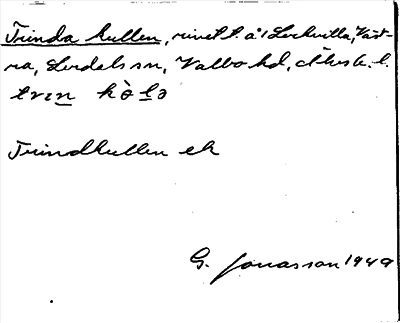 Trinda kullen, rivet t. å 1 Lerkvilla, Väst-
ra, Lerdals sn, Valbo hd, Älvsb. l.
trɪn kòlə
Trindkullen ek
G. Jonasson 1949